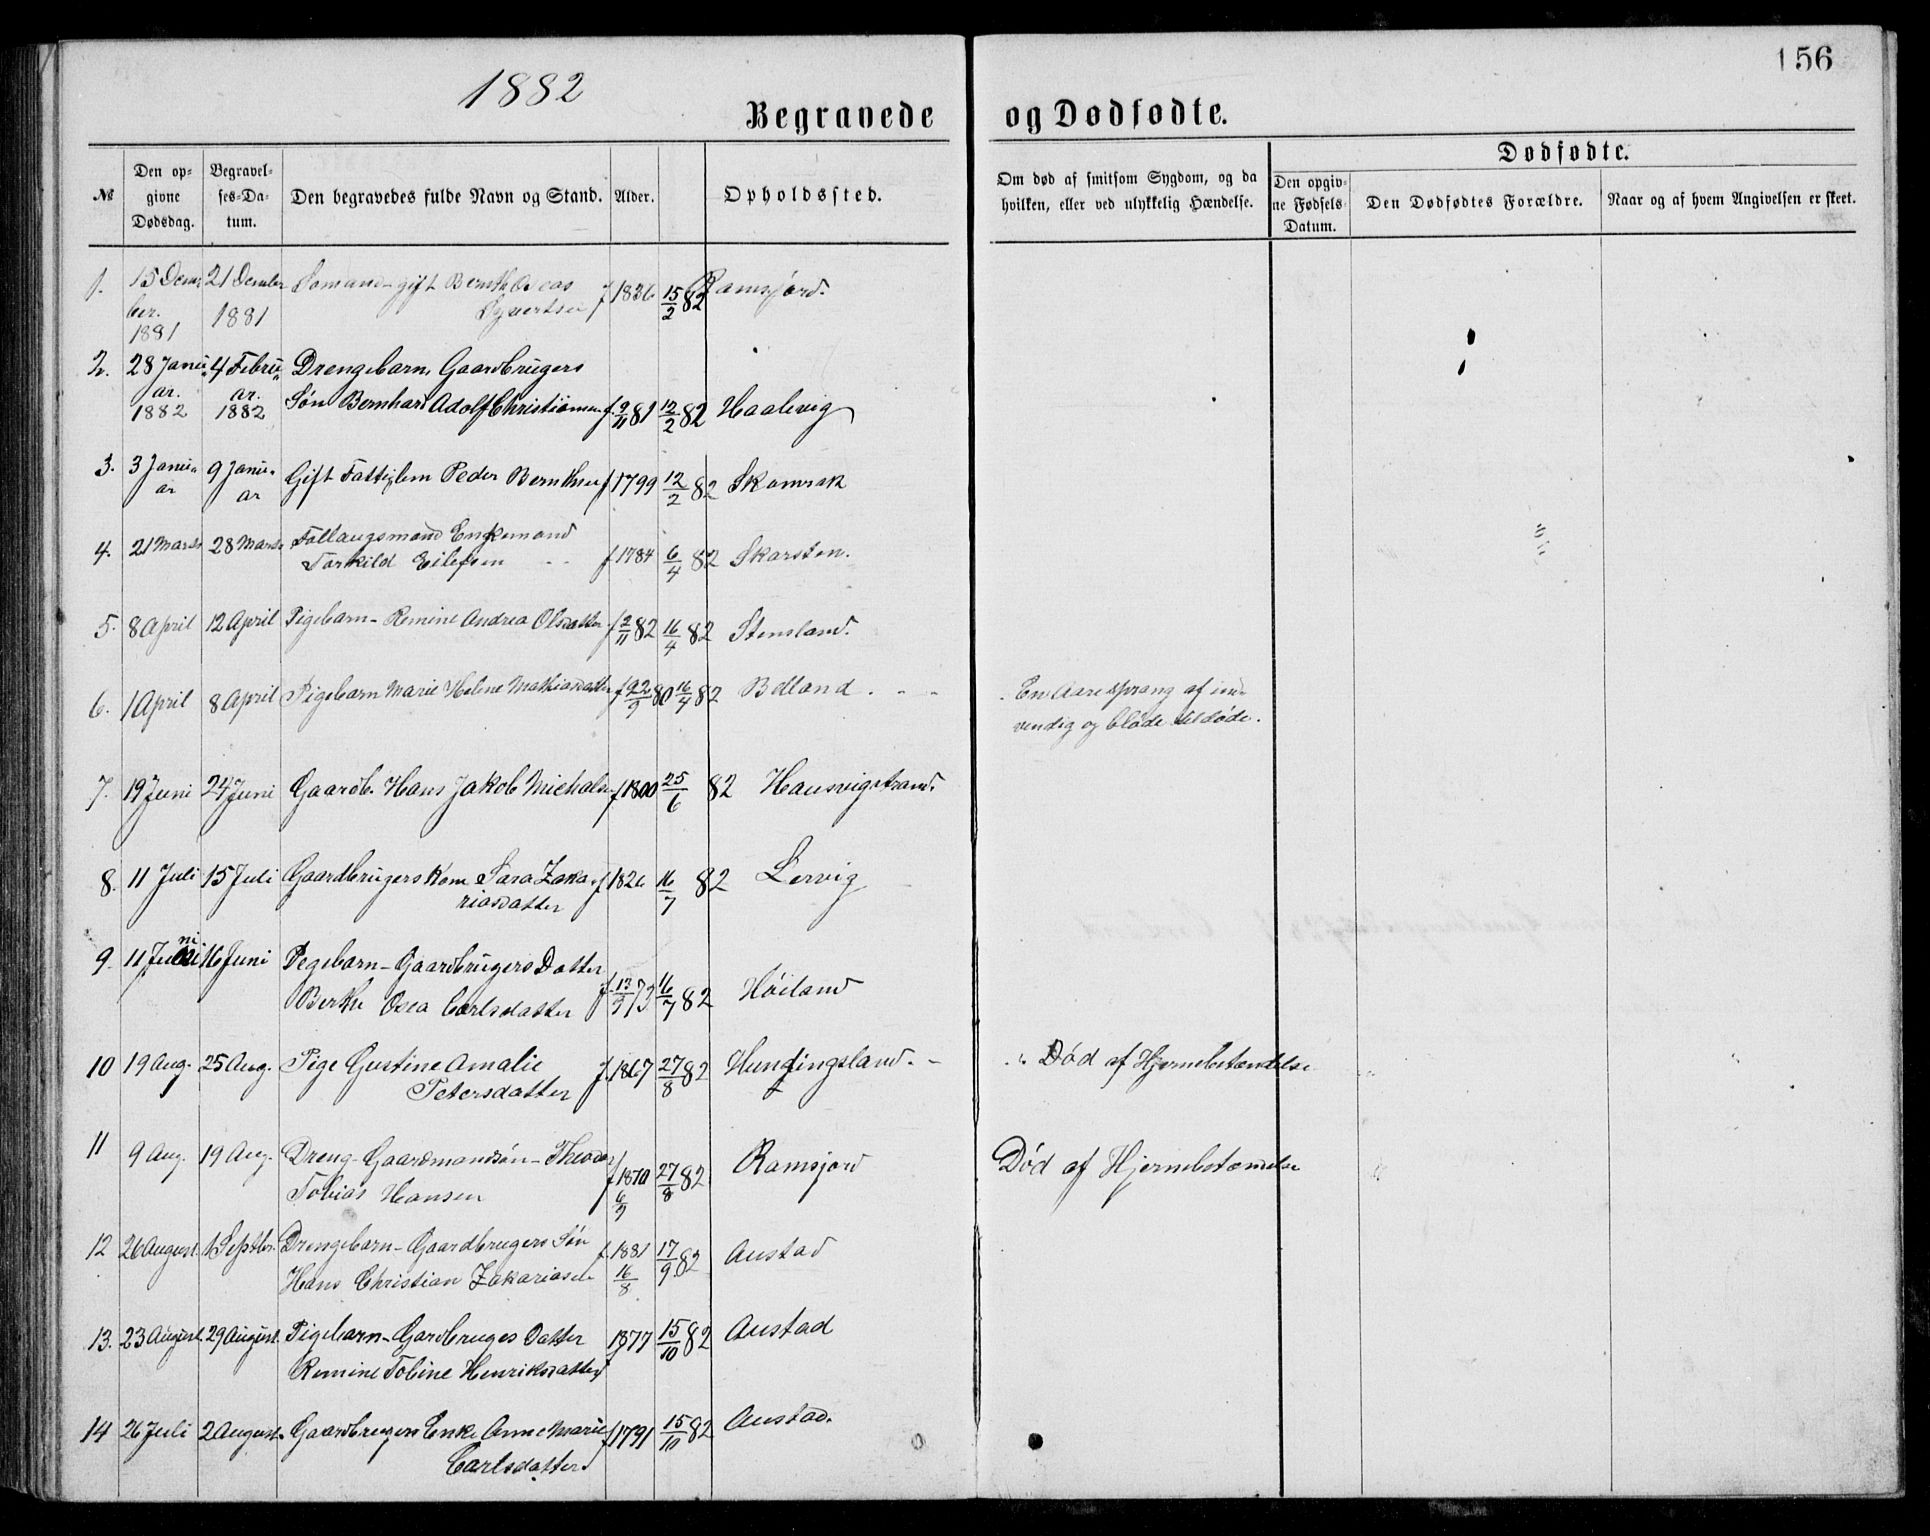 156
1882
Begravede og Dødfødte.
№
Den op-
givne
Dødsdag.
Begravel-
ses-Da-
tum.
Den begravedes fulde Navn og Stand.
Alder.
Opholdssted.
Om død af smitsom Sygdom, og da
hvilken, eller ved ulykkelig Hændelse.
Dødfødte.
Den opgiv-
ne Fødsels-
Datum.
Den Dødfødtes Forældre.
Naar og af hvem Angivelsen er skeet.
1. 15 Decem 21 December Sømand - gift Bernth f 1836 15/2 82 Ramsfjord.
ber. 1881 Syvertsen
1881
2. 28 Janu 4 Febru Drengebarn, Gaardbrugers
ar. ar. Søn Bernhard Adolf Christiansen f. 9/11 81 12/2 82 Haalevig
1882 1882
3. 3 Janu- 9 Janu- Gift Fattiglem Peder Bernthsen f 1799 12/2 82 Skomrak
ar ar
4. 21 Marts 28 Marts Follaugsmand Enkemand
Torkild Eilefsen f 1784 6/4 82 Skarsten.
5. 8 April 12 April Pigebarn - Remine Andrea Olsdatter f 2/11 82 16/4 82 Stensland.
6. 1 April 8 April Pigebarn Marie Helene Mathiasdatter f 22/9 80 16/4 82 Bolland. En Aare sprang af ind-
vendig og blødde til døde.
7. 19 Juni 24 Juni Gaardb. Hans Jakob Michals f 1800 25/6 82 Hausvigstrand.
8. 11 Juli 15 Juli Gaardbrugerskone Sara Zaka- f 1826 16/7 82 Lervig
riasdatter
9. 11 Juni 16 Juni Pegebarn - Gaardbrugers Datter
Berthe Osea Carlsdatter f. 13/9 73 16/7 82 Høiland
10 19 Aug. 25 Aug. Pige Gustine Amalie f. 1867 27/8 82 Hundingsland. Død af Hjernebetændelse
Petersdatter
11 9 Aug. 19 Aug. Dreng - Gaardmandsøn - Theodor f 1870 27/8 82 Ramsjord Død af Hjernebetændelse
Tobias Hansen 6/9
12 26 August. 1 Septbr. Drengebarn - Gaardbrugers Søn f. 1881 17/9 82 Austad
Hans Christian Zakariasen 16/8
13. 23 August. 29 August. Pigebarn - Gardbruges Datter 1877 15/10 82 Austad
Remine Tobine Henriksdatter f
14 26 Juli 2 August. Gaardbrugers Enke Anne Marie f 1791 15/10 82 Austad.
Carlsdatter